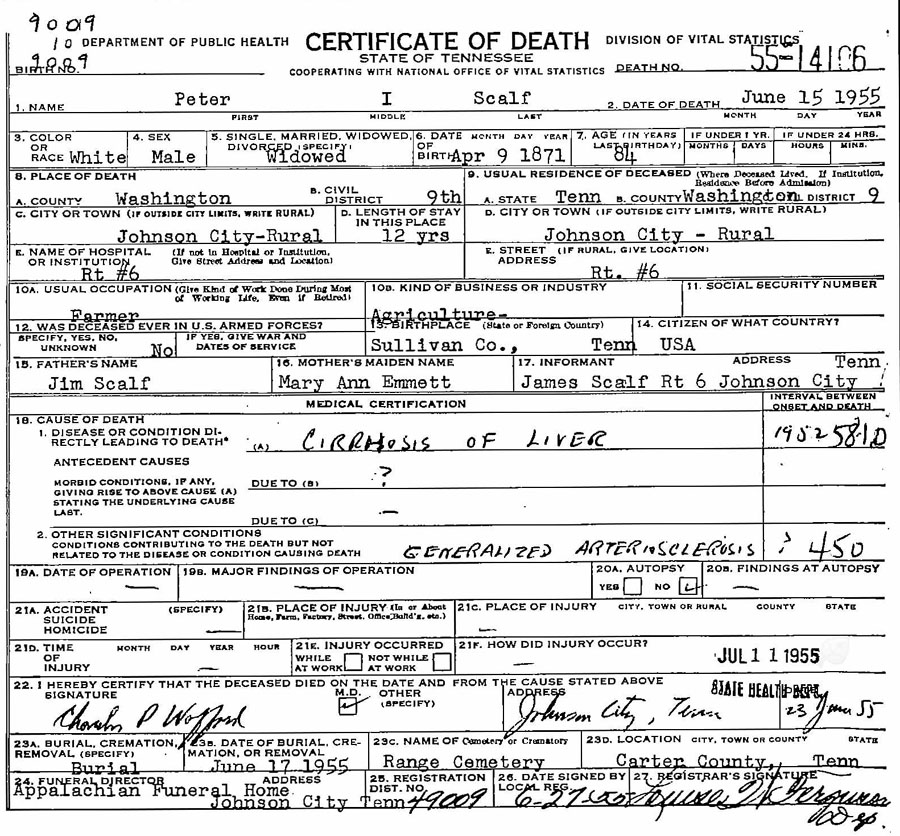 9009
10 DEPARTMENT OF PUBLIC HEALTH CERTIFICATE OF DEATH DIVISION OF VITAL STATISTICS
9009 STATE OF TENNESSEE
BIRTH NO. COOPERATING WITH NATIONAL OFFICE OF VITAL STATISTICS DEATH NO. 55-14106
1. NAME Peter I Scalf 2. DATE OF DEATH June 15 1955
FIRST MIDDLE LAST MONTH DAY YEAR
3. COLOR OR RACE White 4. SEX Male 5. SINGLE, MARRIED, WIDOWED, DIVORCED (SPECIFY) Widowed 6. DATE OF BIRTH MONTH DAY YEAR Apr 9 1871 7. AGE (IN YEARS LAST BIRTHDAY) 84 IF UNDER 1 YR. MONTHS DAYS IF UNDER 24 HRS. HOURS MINS.
8. PLACE OF DEATH 9. USUAL RESIDENCE OF DECEASED (Where Deceased Lived. If Institution, Residence Before Admission)
A. COUNTY Washington B. CIVIL DISTRICT 9th A. STATE Tenn B. COUNTY Washington DISTRICT 9
C. CITY OR TOWN (IF OUTSIDE CITY LIMITS, WRITE RURAL) D. LENGTH OF STAY IN THIS PLACE D. CITY OR TOWN (IF OUTSIDE CITY LIMITS, WRITE RURAL)
Johnson City-Rural 12 yrs Johnson City - Rural
E. NAME OF HOSPITAL OR INSTITUTION (If not in Hospital or Institution, Give Street Address and Location) E. STREET ADDRESS (IF RURAL, GIVE LOCATION)
Rt #6 Rt. #6
10A. USUAL OCCUPATION (Give Kind of Work Done During Most of Working Life, Even if Retired) 10B. KIND OF BUSINESS OR INDUSTRY 11. SOCIAL SECURITY NUMBER
Farmer Agriculture-
12. WAS DECEASED EVER IN U.S. ARMED FORCES? 13. BIRTHPLACE (State or Foreign Country) 14. CITIZEN OF WHAT COUNTRY?
SPECIFY, YES, NO, UNKNOWN No IF YES, GIVE WAR AND DATES OF SERVICE Sullivan Co., Tenn USA
15. FATHER'S NAME 16. MOTHER'S MAIDEN NAME 17. INFORMANT ADDRESS Tenn
Jim Scalf Mary Ann Emmett James Scalf Rt 6 Johnson City
MEDICAL CERTIFICATION INTERVAL BETWEEN ONSET AND DEATH
18. CAUSE OF DEATH
1. DISEASE OR CONDITION DIRECTLY LEADING TO DEATH* (A) CIRRHOSIS OF LIVER 1952 5810
ANTECEDENT CAUSES
MORBID CONDITIONS, IF ANY, GIVING RISE TO ABOVE CAUSE (A) STATING THE UNDERLYING CAUSE LAST. DUE TO (B) ?
DUE TO (C) —
2. OTHER SIGNIFICANT CONDITIONS
CONDITIONS CONTRIBUTING TO THE DEATH BUT NOT
RELATED TO THE DISEASE OR CONDITION CAUSING DEATH GENERALIZED ARTERIOSCLEROSIS ? 450
19A. DATE OF OPERATION — 19B. MAJOR FINDINGS OF OPERATION — 20A. AUTOPSY YES NO 20B. FINDINGS AT AUTOPSY —
21A. ACCIDENT SUICIDE HOMICIDE (SPECIFY) — 21B. PLACE OF INJURY (In or About Home, Farm, Factory, Street, Office, Build'g, etc.) 21C. PLACE OF INJURY CITY, TOWN OR RURAL COUNTY STATE —
21D. TIME OF INJURY MONTH DAY YEAR HOUR — 21E. INJURY OCCURRED WHILE AT WORK NOT WHILE AT WORK 21F. HOW DID INJURY OCCUR? —
JUL 11 1955
22. I HEREBY CERTIFY THAT THE DECEASED DIED ON THE DATE AND FROM THE CAUSE STATED ABOVE STATE HEALTH DEPT.
SIGNATURE M.D. OTHER (SPECIFY) ADDRESS
Charles P Wofford Johnson City, Tenn 23 June 55
23A. BURIAL, CREMATION, REMOVAL (SPECIFY) 23B. DATE OF BURIAL, CREMATION, OR REMOVAL 23C. NAME OF Cemetery or Crematory 23D. LOCATION CITY, TOWN OR COUNTY STATE
Burial June 17 1955 Range Cemetery Carter County, Tenn
24. FUNERAL DIRECTOR ADDRESS 25. REGISTRATION DIST. NO. 26. DATE SIGNED BY LOCAL REG. 27. REGISTRAR'S SIGNATURE
Appalachian Funeral Home
Johnson City Tenn 49009 6-27-55
Dep.